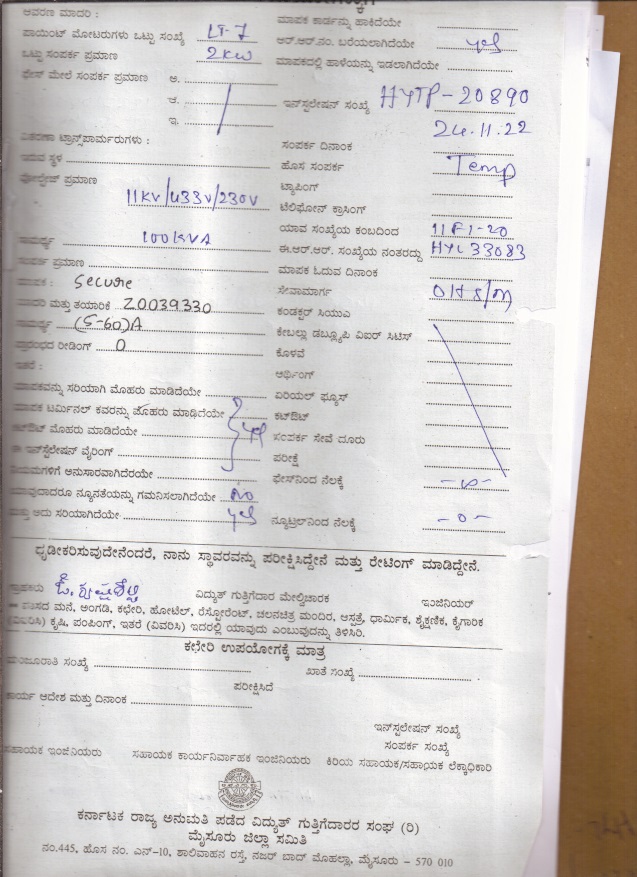 ಆವರಣ ಮಾದರಿ :
ಮಾಪಕ ಕಾರ್ಡನ್ನು ಹಾಕಿದೆಯೇ
ಪಾಯಿಂಟ್ ಮೋಟರುಗಳು ಒಟ್ಟು ಸಂಖ್ಯೆ LT-7
ಆರ್.ಆರ್.ನಂ. ಬರೆಯಲಾಗಿದೆಯೇ yes
ಒಟ್ಟು ಸಂಪರ್ಕ ಪ್ರಮಾಣ 2KW
ಮಾಪಕದಲ್ಲಿ ಹಾಳೆಯನ್ನು ಇಡಲಾಗಿದೆಯೇ
ಫೇಸ್ ಮೇಲೆ ಸಂಪರ್ಕ ಪ್ರಮಾಣ ಅ.
ಆ.
ಇ.
ಇನ್‌ಸ್ಟಲೇಷನ್ ಸಂಖ್ಯೆ HYTP-20890
24.11.22
ವಿತರಣಾ ಟ್ರಾನ್ಸ್‌ಪಾರ್ಮರುಗಳು :
ಸಂಪರ್ಕ ದಿನಾಂಕ
ಇರುವ ಸ್ಥಳ
ಹೊಸ ಸಂಪರ್ಕ Temp
ವೋಲ್ಟೇಜ್ ಪ್ರಮಾಣ
ಟ್ಯಾಪಿಂಗ್
11KV/433V/230V
ಟೆಲಿಫೋನ್ ಕ್ರಾಸಿಂಗ್
ಯಾವ ಸಂಖ್ಯೆಯ ಕಂಬದಿಂದ
ಸಾಮರ್ಥ್ಯ 100KVA
ಈ.ಆರ್.ಆರ್. ಸಂಖ್ಯೆಯ ನಂತರದ್ದು HYL33083
ಸಂಪರ್ಕ ಪ್ರಮಾಣ
ಮಾಪಕ ಓದುವ ದಿನಾಂಕ
ಮಾಪಕ : Secure
ಸೇವಾಮಾರ್ಗ OH S/M
ಮಾದರಿ ಮತ್ತು ತಯಾರಿಕೆ Z0039330
ಕಂಡಕ್ಟರ್ ಸಿಯುಎ
ಸಾಮರ್ಥ್ಯ (5-60)A
ಕೇಬಲ್ಲು ಡಬ್ಲ್ಯೂಪಿ ವಿಐರ್ ಸಿಟಿಸ್
ಪ್ರಾರಂಭದ ರೀಡಿಂಗ್ 0
ಕೊಳವೆ
ಇತರೆ :
ಆರ್ಥಿಂಗ್
ಮಾಪಕವನ್ನು ಸರಿಯಾಗಿ ಮೊಹರು ಮಾಡಿದೆಯೇ
ಏರಿಯಲ್ ಫ್ಯೂಸ್
ಮಾಪಕ ಟರ್ಮಿನಲ್ ಕವರನ್ನು ಮೊಹರು ಮಾಡಿದೆಯೇ
ಕಟ್‌ಔಟ್
ಕಟ್‌ಔಟ್ ಮೊಹರು ಮಾಡಿದೆಯೇ yes
ಸಂಪರ್ಕ ಸೇವೆ ದೂರು
ಈ ಇನ್‌ಸ್ಟಲೇಷನ್ ವೈರಿಂಗ್
ಪರೀಕ್ಷೆ
ನಿಯಮಗಳಿಗೆ ಅನುಸಾರವಾಗಿದೆರಯೇ
ಫೇಸ್‌ನಿಂದ ನೆಲಕ್ಕೆ
ಯಾವುದಾದರೂ ನ್ಯೂನತೆಯನ್ನು ಗಮನಿಸಲಾಗಿದೆಯೇ No
ಮತ್ತು ಅದು ಸರಿಯಾಗಿದೆಯೇ yes
ನ್ಯೂಟ್ರಲ್‌ನಿಂದ ನೆಲಕ್ಕೆ -0-
ಧೃಡೀಕರಿಸುವುದೇನೆಂದರೆ, ನಾನು ಸ್ಥಾವರವನ್ನು ಪರೀಕ್ಷಿಸಿದ್ದೇನೆ ಮತ್ತು ರೇಟಿಂಗ್ ಮಾಡಿದ್ದೇನೆ.
ಗ್ರಾಹಕರು
ವಿದ್ಯುತ್ ಗುತ್ತಿಗೆದಾರ ಮೇಲ್ವಿಚಾರಕ
ಇಂಜಿನಿಯರ್
ವಾಸದ ಮನೆ, ಅಂಗಡಿ, ಕಛೇರಿ, ಹೋಟೆಲ್, ರೆಸ್ಟೋರೆಂಟ್, ಚಲನಚಿತ್ರ ಮಂದಿರ, ಆಸ್ಪತ್ರೆ, ಧಾರ್ಮಿಕ, ಶೈಕ್ಷಣಿಕ, ಕೈಗಾರಿಕ
(ವಿವರಿಸಿ) ಕೃಷಿ, ಪಂಪಿಂಗ್, ಇತರೆ (ವಿವರಿಸಿ) ಇದರಲ್ಲಿ ಯಾವುದು ಎಂಬುವುದನ್ನು ತಿಳಿಸಿರಿ.
ಕಛೇರಿ ಉಪಯೋಗಕ್ಕೆ ಮಾತ್ರ
ಮಂಜೂರಾತಿ ಸಂಖ್ಯೆ
ಖಾತೆ ಸಂಖ್ಯೆ
ಪರೀಕ್ಷಿಸಿದೆ
ಕಾರ್ಯ ಆದೇಶ ಮತ್ತು ದಿನಾಂಕ
ಇನ್‌ಸ್ಟಲೇಷನ್ ಸಂಖ್ಯೆ
ಸಂಪರ್ಕ ಸಂಖ್ಯೆ
ಸಹಾಯಕ ಇಂಜಿನಿಯರು
ಸಹಾಯಕ ಕಾರ್ಯನಿರ್ವಾಹಕ ಇಂಜಿನಿಯರು
ಕಿರಿಯ ಸಹಾಯಕ/ಸಹಾಯಕ ಲೆಕ್ಕಾಧಿಕಾರಿ
ಕರ್ನಾಟಕ ರಾಜ್ಯ ಅನುಮತಿ ಪಡೆದ ವಿದ್ಯುತ್ ಗುತ್ತಿಗೆದಾರರ ಸಂಘ (ರಿ)
ಮೈಸೂರು ಜಿಲ್ಲಾ ಸಮಿತಿ
ನಂ.445, ಹೊಸ ನಂ. ಎನ್-10, ಶಾಲಿವಾಹನ ರಸ್ತೆ, ನಜರ್ ಬಾದ್ ಮೊಹಲ್ಲಾ, ಮೈಸೂರು - 570 010